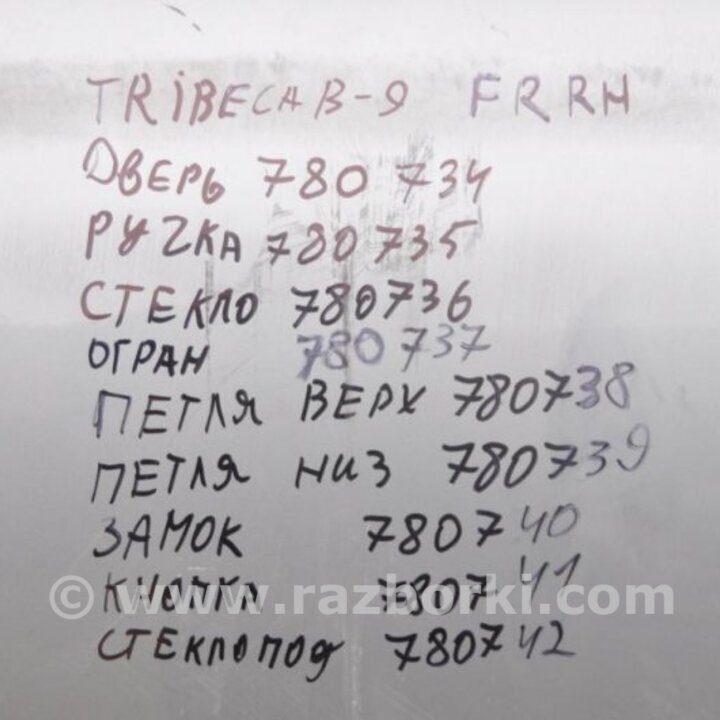 TRIBECA B-9 FRRH
ДВЕРЬ 780 734
РУЧКА 780 735
СТЕКЛО 780736
ОГРАН 780 737
ПЕТЛЯ ВЕРХ 780738
ПЕТЛЯ НИЗ 780739
ЗАМОК 780740
КНОПКА 780741
© www.razborki.com
СТЕКЛОПОД 780742